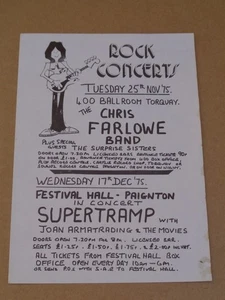 ROCK
CONCERTS
TUESDAY 25TH NOV '75.
400 BALLROOM TORQUAY.
THE CHRIS
FARLOWE
BAND
PLUS SPECIAL
GUESTS THE SURPRISE SISTERS
DOORS OPEN 7.30PM. LICENSED BARS.
WEDNESDAY 17TH DEC '75.
FESTIVAL HALL - PAIGNTON
IN CONCERT
SUPERTRAMP WITH
JOAN ARMATRADING & THE MOVIES
DOORS OPEN 7-30PM FOR 8PM. LICENSED BAR.
SEATS £1.25p. £1-50p. £1.75p.
ALL TICKETS FROM FESTIVAL HALL BOX
OFFICE OPEN EVERY DAY 10AM - 6PM.
OR SEND P.O.S WITH S.A.E TO FESTIVAL HALL.